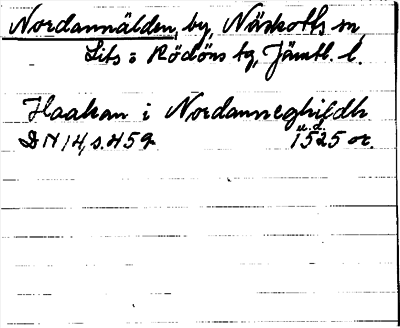 Nordannälden, by, Näskotts sn,
Lits o Rödöns tg, Jämtl. l.
Haakan i Nordanneghifdh
u.d.
DN 14, s. 459 1525 or.